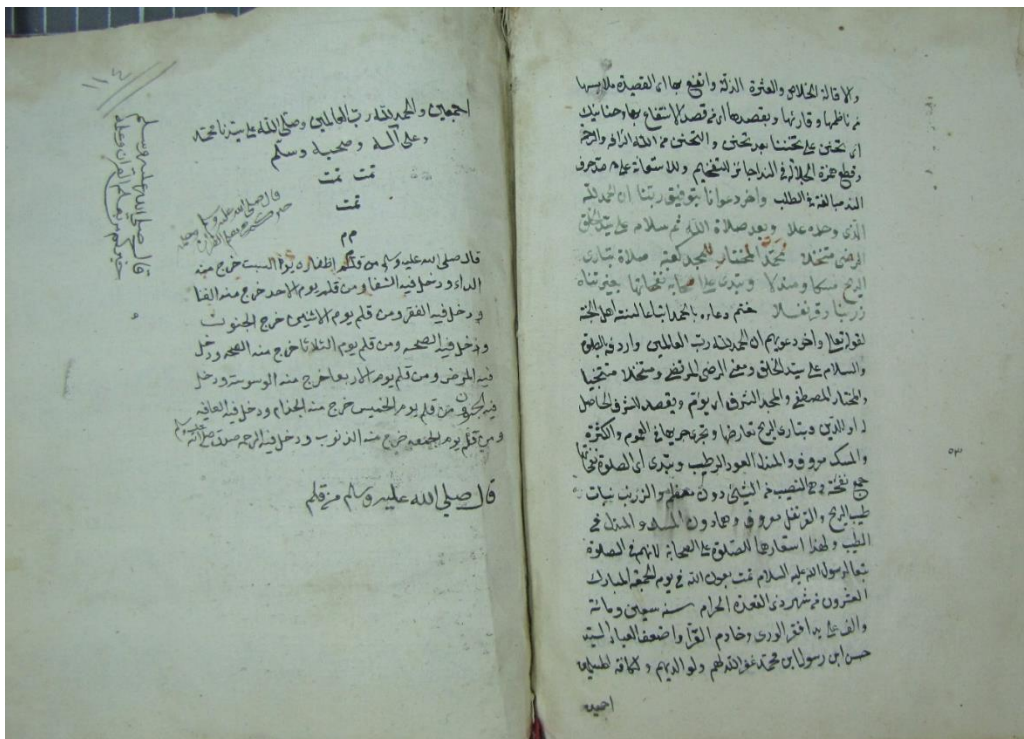 والاقالة الخلاص والعثرة الذلة وانفع بها اي القصيدة ملابسها
من ناظمها وقارئها وبقصدها اي من قصد الانتفاع بها وحنانيك
اي تحنن على تحننا بعد تحنن والتحنن من الله الرأفة والرحمة
وقطع همزة الجلالة في الندا جائز للتفخيم وللاستعانة على مد حرف
الندا مبالغة في الطلب واخر دعوانا بتوفيق ربنا ان الحمد لله
الذي وحده علا وبعد صلاة الله ثم سلامه على سيد الخلق
الرضى متنخلا محمد المختار للمجد كعبة صلاة تبارى
الريح مسكا ومندلا وتبدى على اصحابه نفحاتها بغير تناه
زرنبا وقرنفلا ختم دعاءه بالحمد اتباعا للسنة اهل الجنة
لقوله تعالى واخر دعويهم ان الحمد لله رب العالمين واردفه الصلوة
والسلام على سيد الخلق ومعنى الرضى المرتضى ومتنخلا منتخبا
والمختار المصطفى والمجد الشرف اي يؤم ويقصد الشرف الحاصل
له او الدين وتبارى الريح تعارضها وتجرى جريها في العموم والكثرة
والمسك معروف والمندل العود الرطيب وتبدى اي الصلوة نفحاتها
جمع نفحة وهي النصيب من الشيئ دون معظمه والزرنب نبات
طيب الريح والقرنفل معروف وهما دون المسك والمندل في
الطيب ولهذا استعارها للصلوة على الصحابة لانهم في الصلوة
تبعا لرسول الله عليه السلام تمت بعون الله في يوم الجمعة المبارك
العشرون من شهر ذى القعدة الحرام سنه سبعين ومائة
والف على يد افقر الورى وخادم القرا واضعف العباد السيد
حسن ابن رسول ابن محمد غفر الله لهم ولوالديهم ولكافة المسلمين
اجمعين
٥٣
اجمعين والحمد لله رب العالمين وصلى الله على سيدنا محمد
وعلى آله وصحبه وسلم
تمت تمت
تمت
م م
قال صلى الله عليه وسلم
خيركم من تعلم القرآن وعلمه
قال صلى الله عليه وسلم من قلم اظفاره يوم السبت خرج منه
الداء ودخل فيه الشفا ومن قلم يوم الاحد خرج منه الفاقا
ودخل فيه الفقر ومن قلم يوم الاثنين خرج الجنون
ودخل فيه الصحه ومن قلم يوم الثلاثا خرج منه الصحه ودخل
فيه المرض ومن قلم يوم الاربعا خرج منه الوسوسة ودخل
فيه الخوف من قلم يوم الخميس خرج منه الجذام ودخل فيه العافيه
ومن قلم يوم الجمعه خرج منه الذنوب ودخل فيه الرحمه صدق صلى الله عليه وسلم
قال صلي الله عليه وسلم من قلم
قال صلي الله عليه وسلم
خيركم من تعلم القران وعلمه